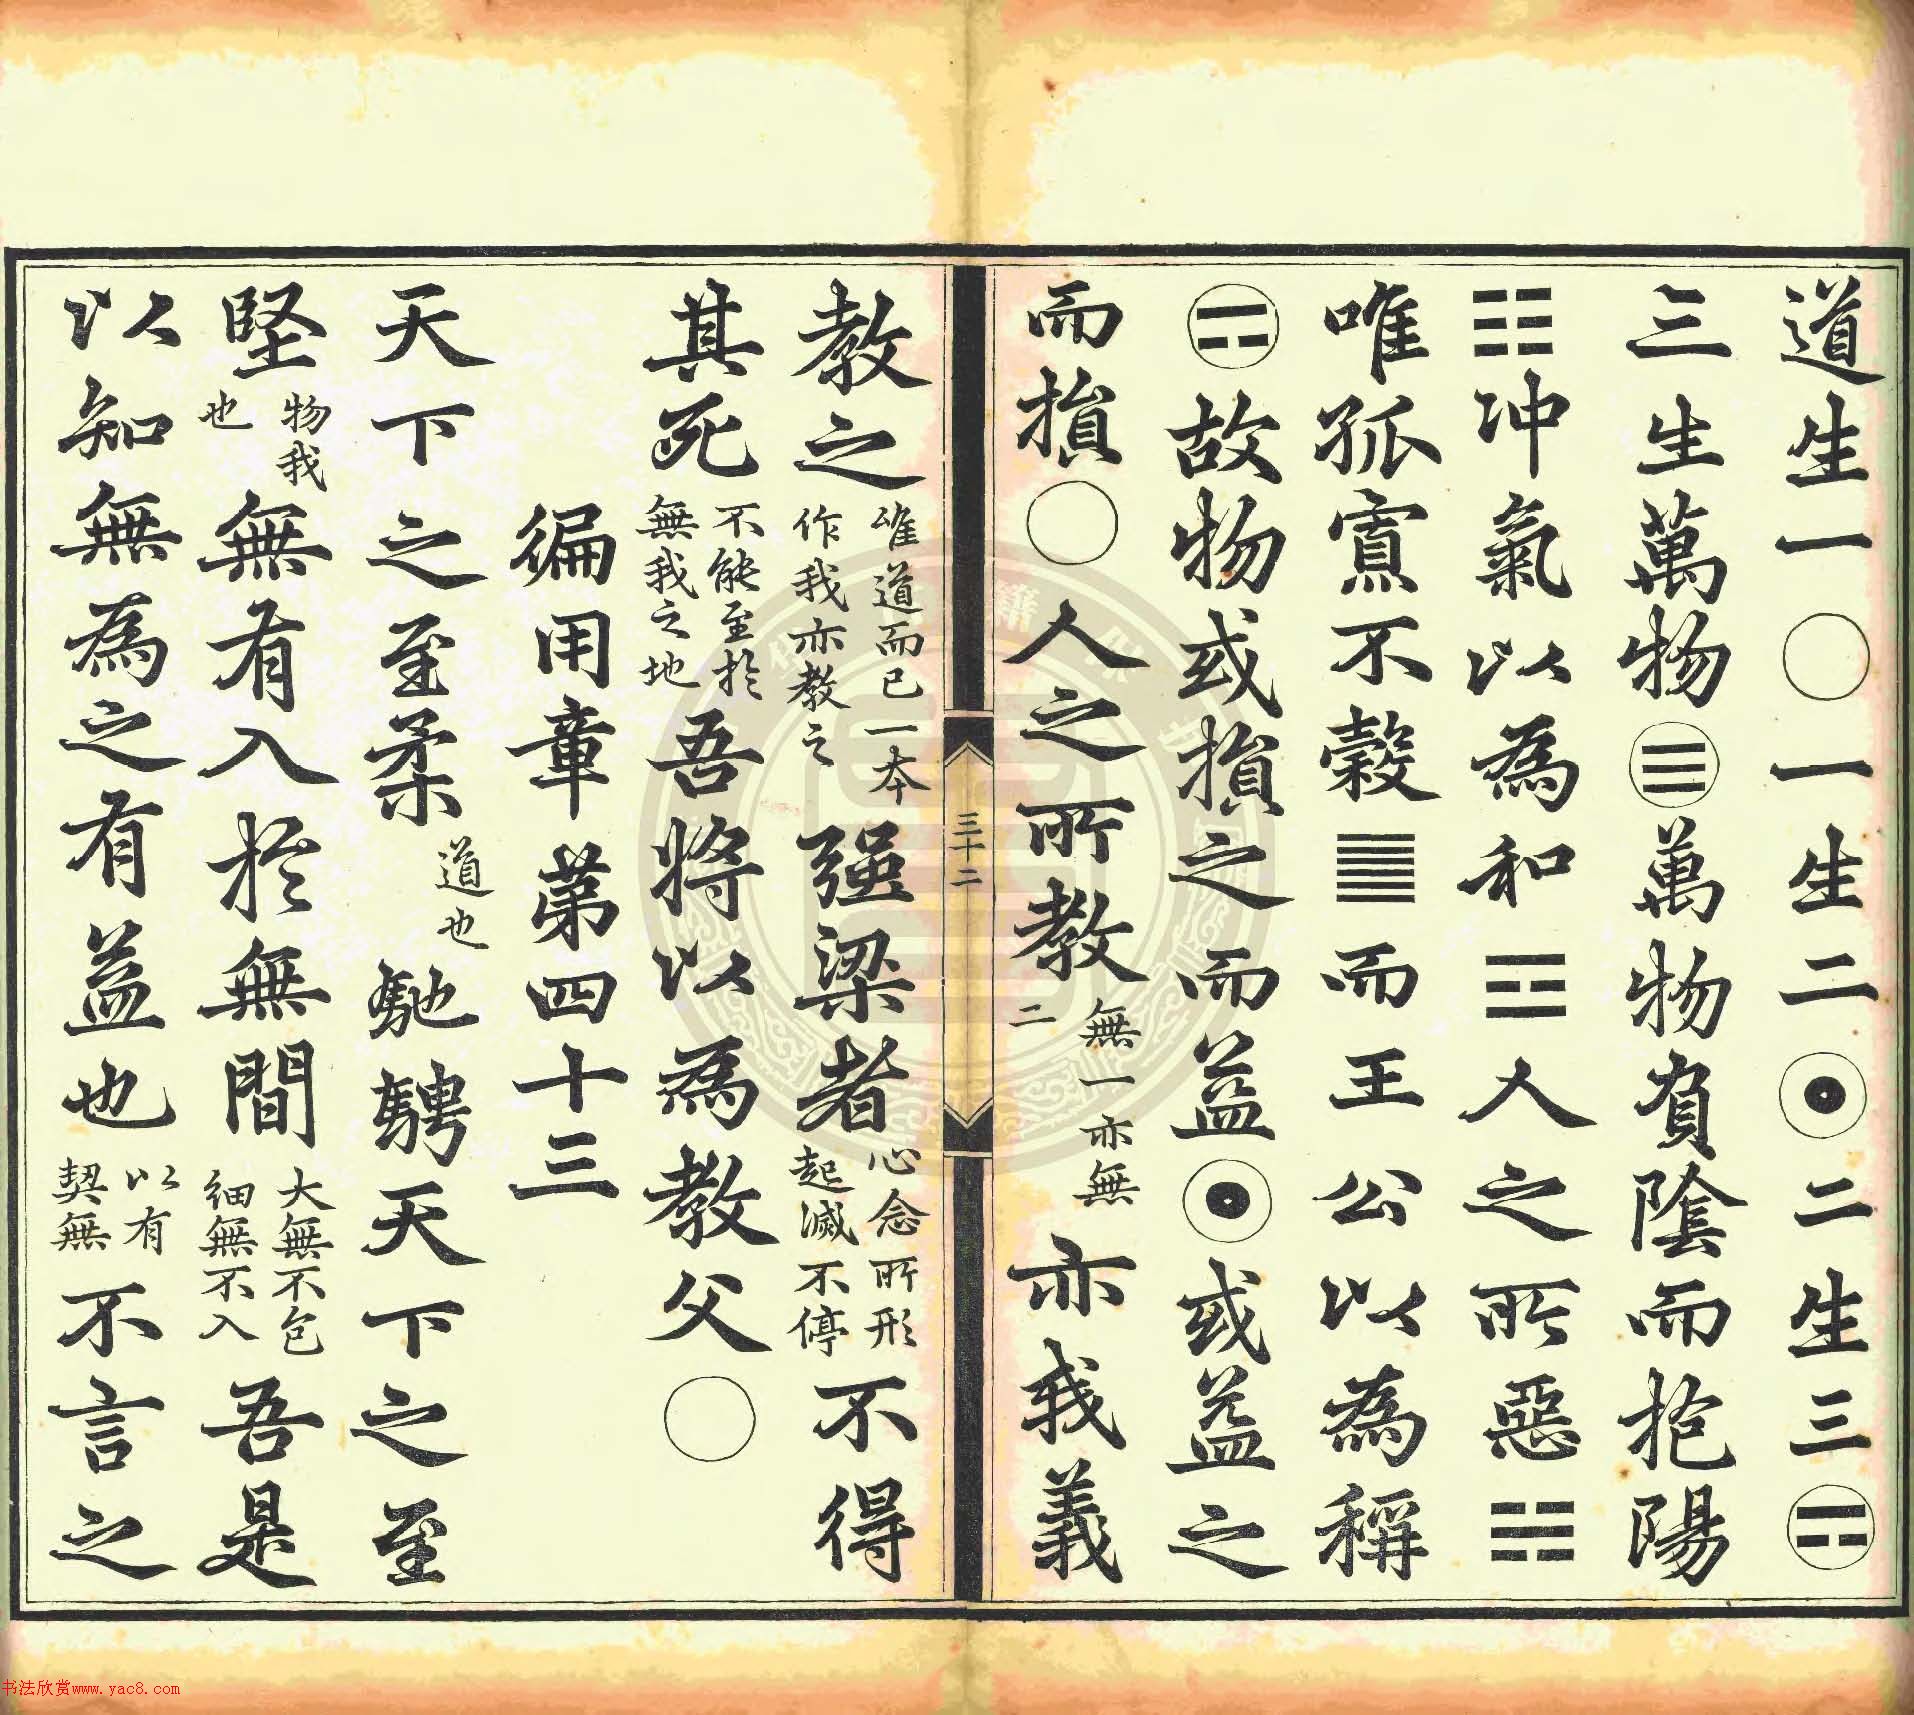 道生一○一生二⊙二生三⚍
三生萬物☰萬物負陰而抱陽
☷冲氣以為和☲人之所惡☷
唯孤寡不穀䷀而王公以為稱
⚍故物或損之而益⊙或益之
而損○人之所教無一亦無二亦我義
三十二
教之唯道而已一本作我亦教之强梁者心念所形起滅不停不得
其死不能至於無我之地吾將以為教父○
徧用章第四十三
天下之至柔道也馳騁天下之至
堅物我也無有入於無間大無不包細無不入吾是
以知無為之有益也以有契無不言之
书法欣赏www.yac8.com